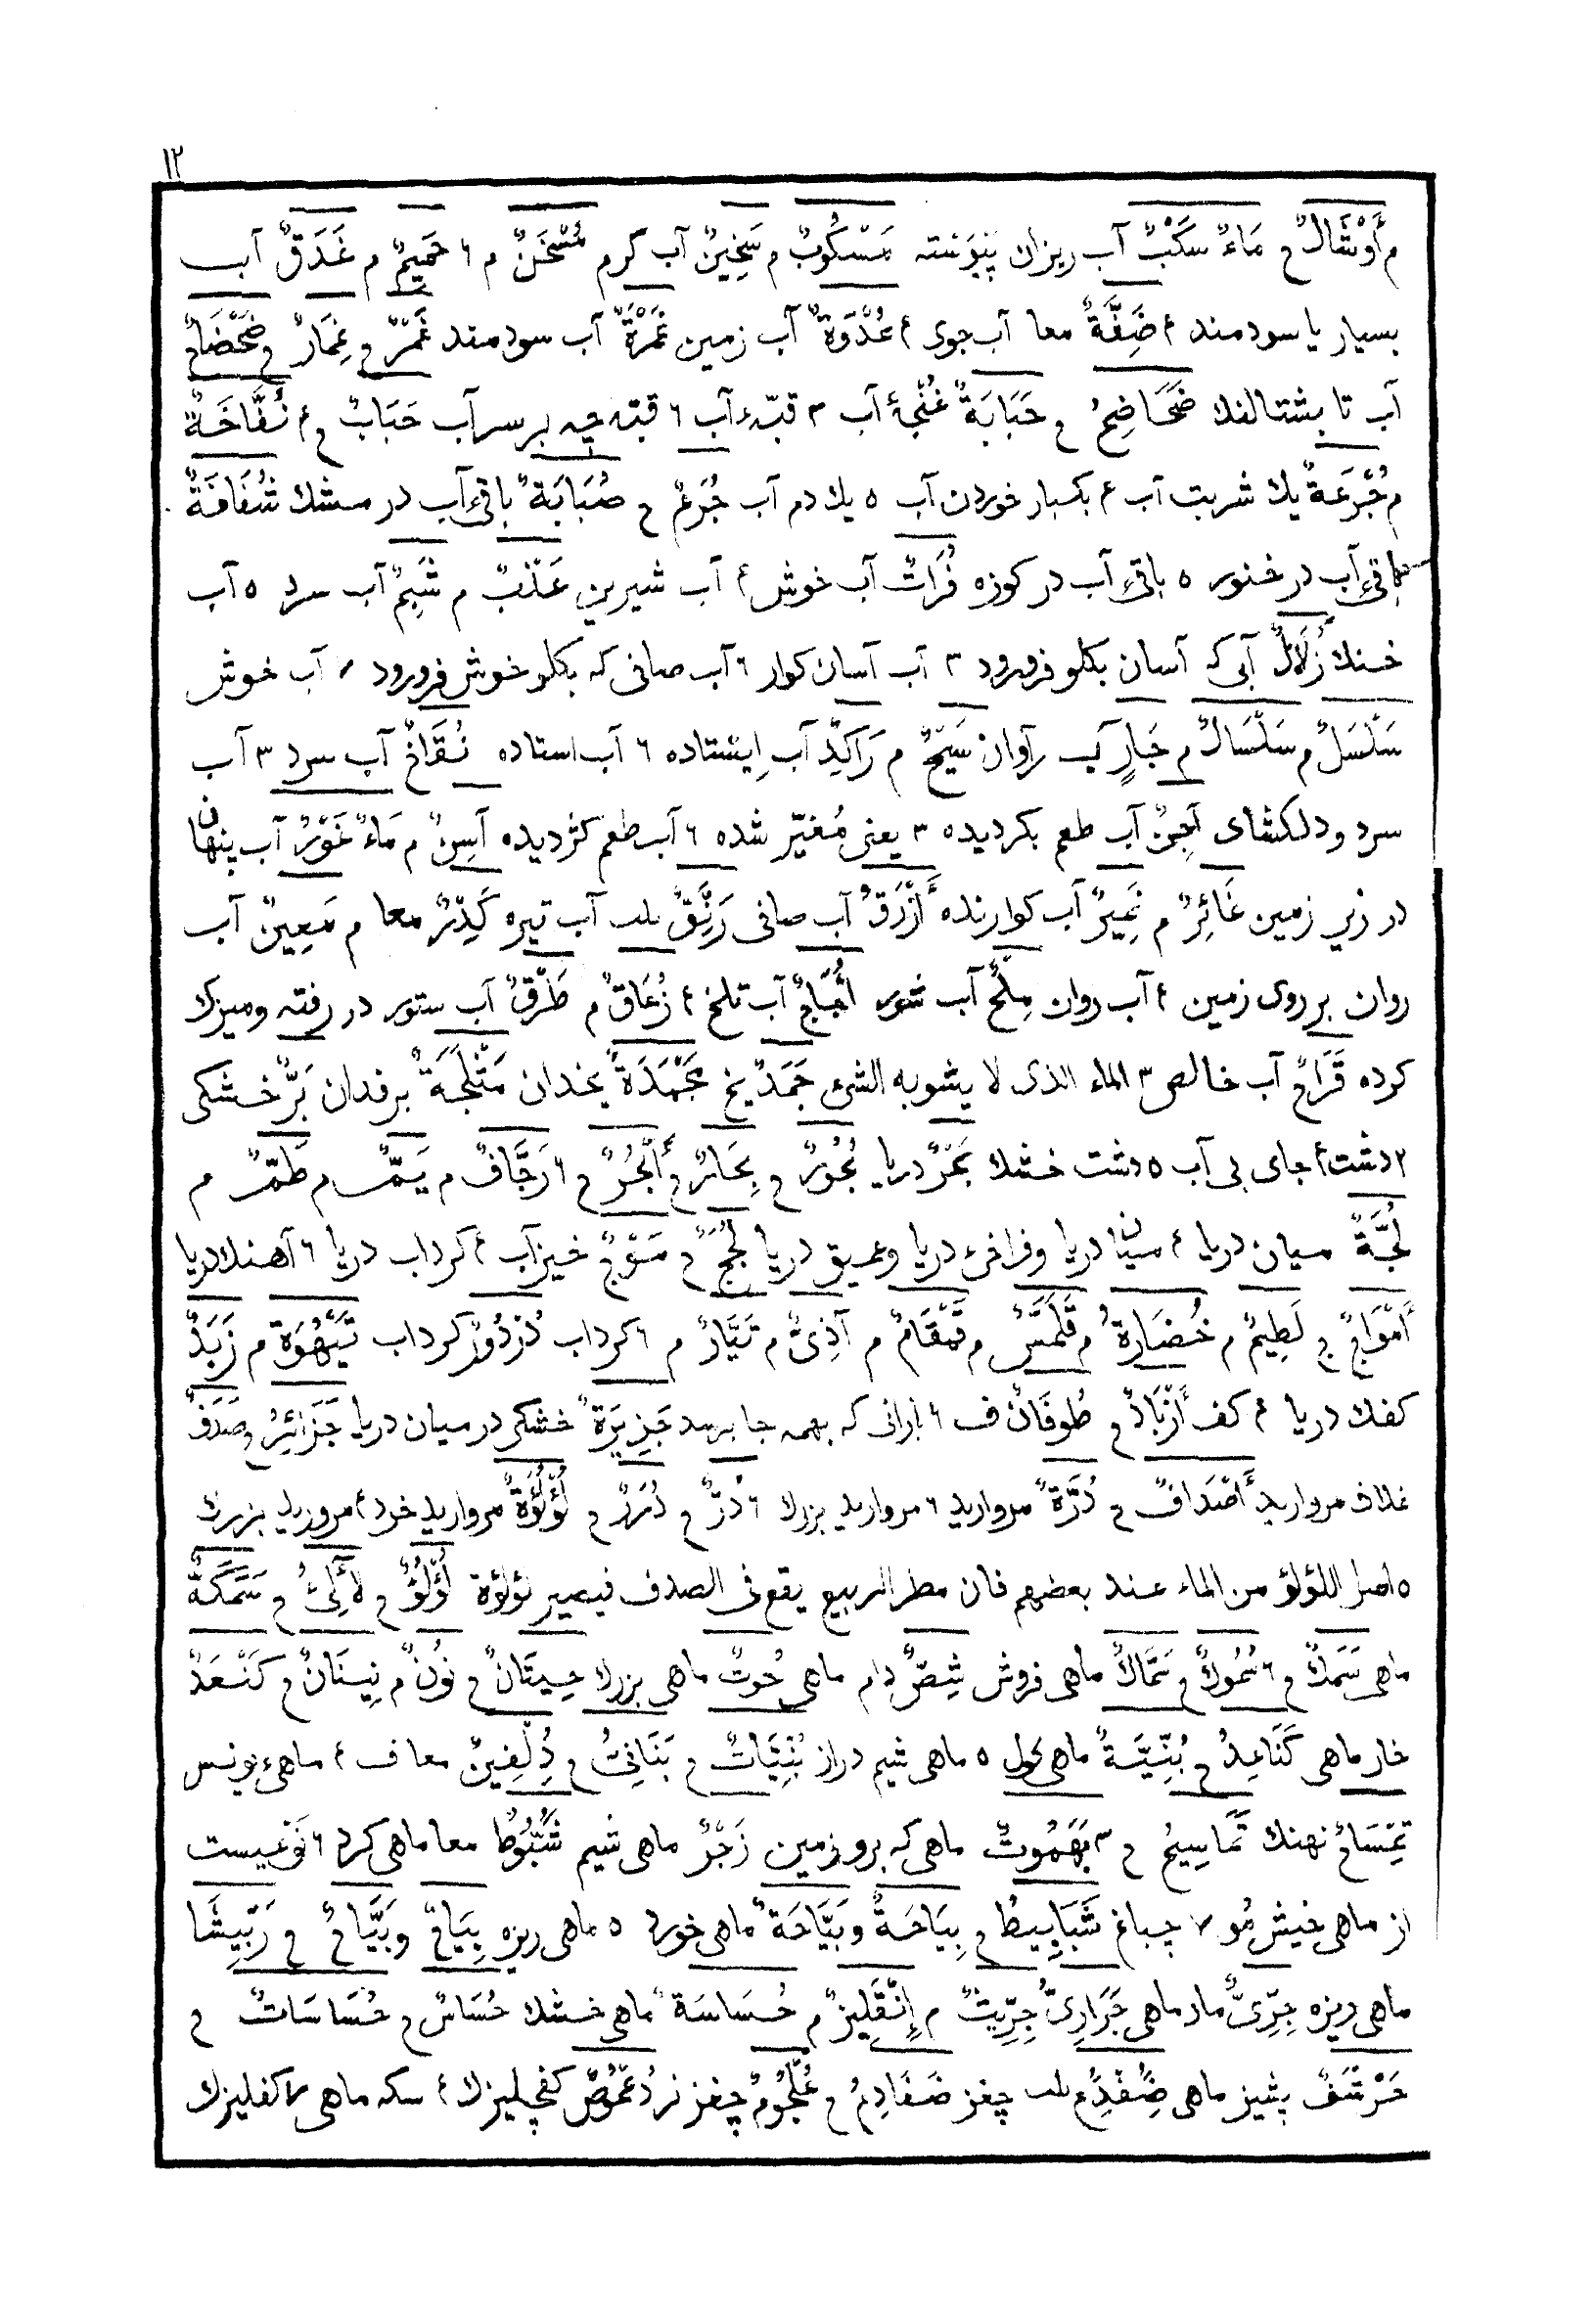 ١٢
م أَوْشَالٌ م مَاءٌ سَكَبٌ آب ريزان پيوَسته مَسْكُوبٌ م سَخِينٌ آب گرم مُسْخَنٌ م ٦ حَمِيمٌ م غَدَقٌ آب
بسيار يا سودمند ٤ ضِفَّةٌ معا آب جوى ٤ عُدْوَةٌ آب زمين غَمْرَةٌ آب سودمند غَمْرٌ م غِمَارٌ م ضَحْضَاحٌ
آب تا بشتالنك ضَحَاضِحُ م حَبَابَةٌ غُنْجهٔ آب ٣ قبّهء آب ٦ قبّه چه بر سر آب حَبَابٌ م ٤ نُفَّاخَةٌ
م جُرْعَةٌ يك شربت آب ٤ بكبار خوردن آب ٥ يك دم آب جُرَعٌ م صُبَابَةٌ باقىء آب در مشك شُفَافَةٌ
باقىء آب در خنور ٥ باقىء آب در كوزه فُرَاتٌ آب خوش ٤ آب شيرين عَذْبٌ م شَبِمٌ آب سرد ٥ آب
خنك زُلَالٌ آبى كه آسان بكلو فرورود ٣ آب آسان كوار ٦ آب صافى كه بكلو خوش فرورود ٧ آب خوش
سَلْسَلٌ م سَلْسَالٌ م جَارٍ آب روان سَيْحٌ م رَاكِدٌ آب ايستاده ٦ آب استاده نُقَاخٌ آب سرد ٣ آب
سرد و دلكشاى آجِنٌ آب طعم بكرديده ٣ يعنى مُغيّر شده ٦ آب طعم كژديده آسِنٌ م مَاءٌ غَوْرٌ آب پنهان
در زير زمين غَائِرٌ م نَمِيرٌ آب كوارنده أَزْرَقُ آب صافى رَنْقٌ آب تيره كَدِرٌ معا م مَعِينٌ آب
روان بر روى زمين ٤ آب روان مِلْحٌ آب شور أُجَاجٌ آب تلخ ٤ زُعَاقٌ م طَرْقٌ آب ستور در رفته وميزك
كرده قَرَاحٌ آب خالص ٣ الماء الذى لا يشوبه الشئ جَمَدٌ يخ مَجْمَدَةٌ يخدان مَثْلَجَةٌ برفدان بَرٌّ خشكى
٢ دشت ٤ جاى بى آب ٥ دشت خشك بَحْرٌ دريا بُحُورٌ م بِحَارٌ م أَبْحُرٌ م ٦ رَجَّافٌ م يَمٌّ م طَمٌّ م
لُجَّةٌ ميان دريا ٤ ميان دريا وفراخىء دريا وعميق دريا لُجَجٌ م مَوْجٌ خيزآب ٤ كرداب دريا ٦ آهنك دريا
أَمْوَاجٌ م لَطِيمٌ م خُضَارَةُ م قَلَمَّسٌ م قَمْقَامٌ م آذِىٌّ م تَيَّارٌ م ٦ كرداب دُرْدُورٌ كرداب تَيْهُوَةٌ م زَبَدٌ
كفك دريا ٤ كف أَزْبَادٌ م طُوفَانٌ ف ٦ بارانى كه بهمه جا برسد جَزِيرَةٌ خشكى در ميان دريا جَزَائِرُ م صَدَفٌ
غلاف مرواريد أَصْدَافٌ م دُرَّةٌ مرواريد ٦ مرواريد بزرك ٦ دُرٌّ م دُرَرٌ م لُؤْلُؤَةٌ مرواريد خرد ٤ مرواريد بزرك
٥ اصل اللؤلؤ من الماء عند بعضهم فان مطر الربيع يقع فى الصدف فيصير لؤلؤة لُؤْلُؤٌ م لَآلِئُ م سَمَكَةٌ
ماهى سَمَكٌ م ٦ سُمُوكٌ م سَمَّاكٌ ماهى فروش شِصٌّ دام ماهى حُوتٌ ماهى بزرك حِيتَانٌ م نُونٌ م نِينَانٌ م كَنْعَدٌ
خار ماهى كَنَاعِدُ م بُنِّيَّةٌ ماهى كول ٥ ماهى شيم دراز بُنِّيَّاتٌ م بَنَانِىُّ م دُلْفِينٌ معا ف ٤ ماهىء يونس
تِمْسَاحٌ نهنك تَمَاسِيحُ م ٣ بَهَمُوتٌ ماهى كه برو زمين زَجْرٌ ماهى شيم شَبُّوطٌ معا ماهى كرد ٦ نَوعيست
از ماهى خيش مُو ٧ چباغ شَبَابِيطُ م بِيَاحَةٌ وبَيَّاحَةٌ ماهى خورد ٥ ماهى ريزه بِيَاحٌ وبَيَّاحٌ م رَبِّيثَا
ماهى ريزه جِرِّىٌّ مار ماهى جَرَارِىُّ جِرِّيثٌ م إِنْقَلِيزٌ م حُسَاسَةٌ ماهى خشك حُسَاسٌ م حُسَاسَاتٌ م
حَرْشَفٌ پشيز ماهى ضِفْدِعٌ چغز ضَفَادِعُ م عُلْجُومٌ چغز نر دُعْمُوصٌ كفچليزك ٤ سكه ماهى ٧ كفليزك